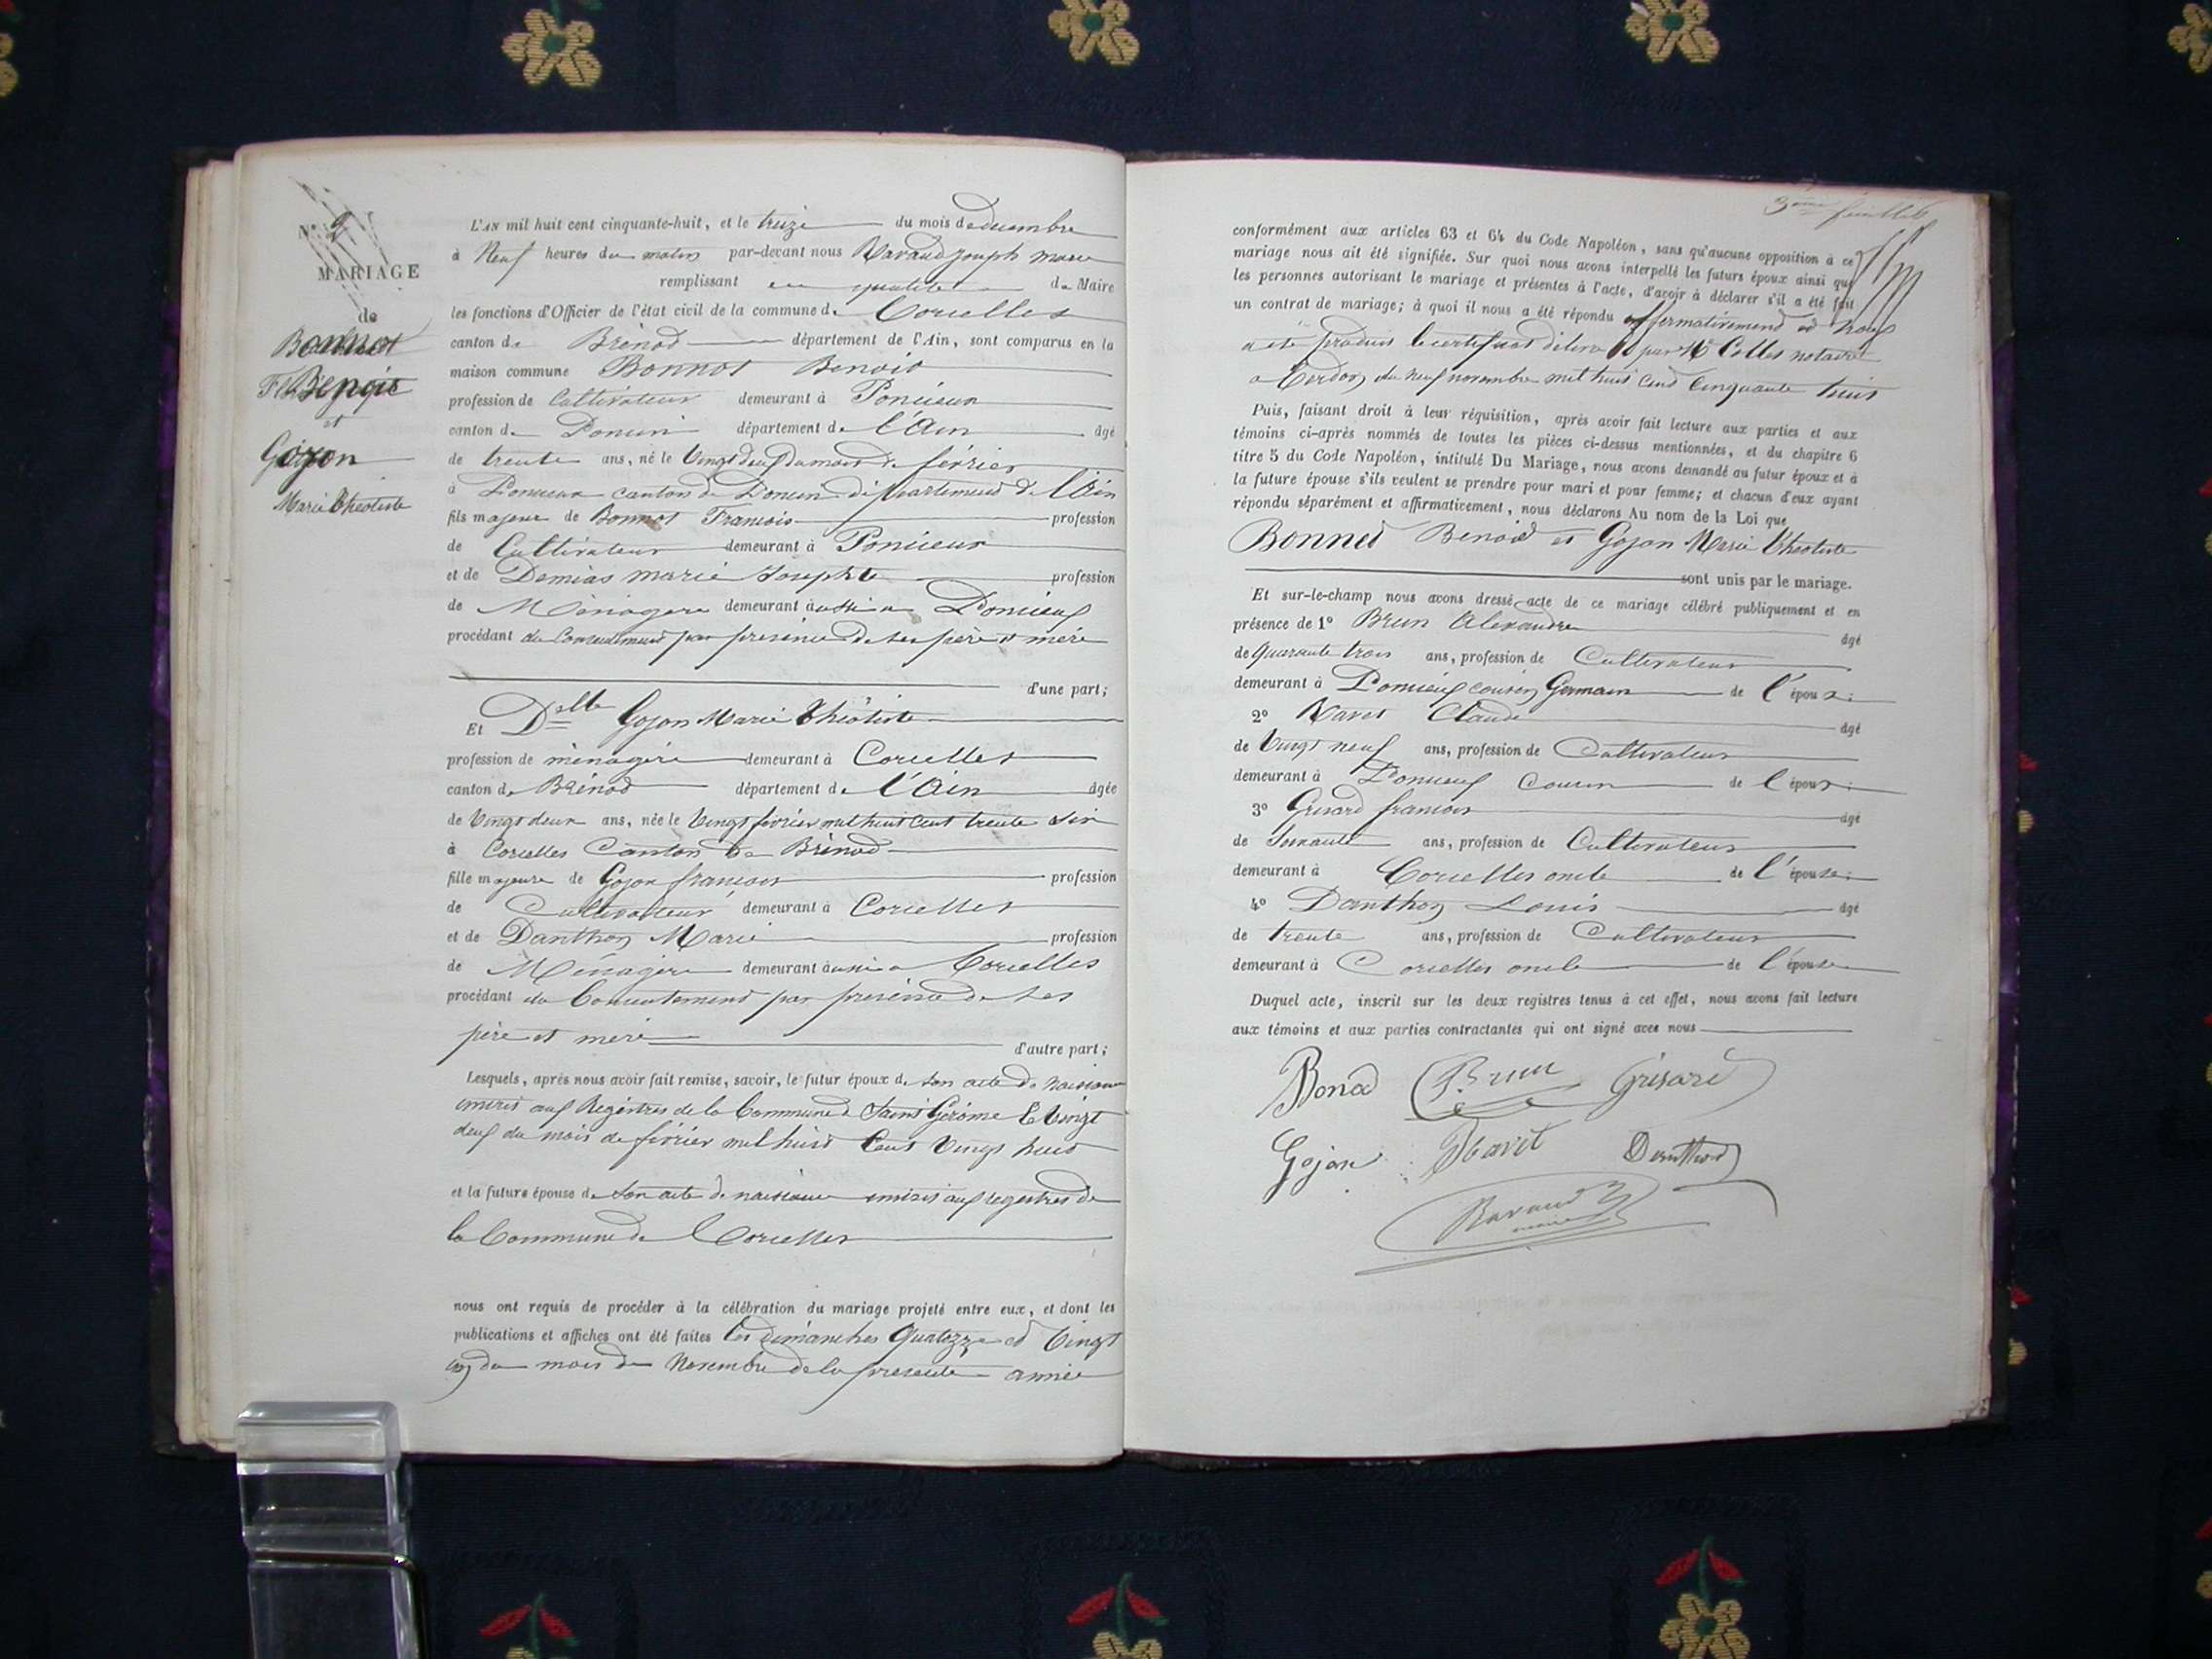 N° 2
MARIAGE
de
Bonnot
Benoit
et
Gojon
Marie Théotiste
L'AN mil huit cent cinquante-huit, et le treize du mois de decembre
à Neuf heures du matin par-devant nous Ravaud Joseph marie
remplissant en qualité de Maire
les fonctions d'Officier de l'état civil de la commune de Corcelles
canton de Brénod département de l'Ain, sont comparus en la
maison commune Bonnot Benoit
profession de Cultivateur demeurant à Poncieux
canton de Poncin département de l'Ain âgé
de trente ans, né le Vingt deux du mois de février
à Poncieux canton de Poncin département de l'Ain
fils majeur de Bonnot Francois profession
de Cultivateur demeurant à Poncieux
et de Demias marie Josephte profession
de Ménagere demeurant à aussi a Poncieux
procédant du Consentement par presence de ses père et mère
d'une part;
Et Delle Gojon Marie Théotiste
profession de ménagère demeurant à Corcelles
canton de Brénod département de l'Ain âgée
de Vingt deux ans, née le Vingt février mil huit Cent trente Six
à Corcelles Canton de Brénod
fille majeure de Gojon francois profession
de Cultivateur demeurant à Corcelles
et de Danthon Marie profession
de Ménagère demeurant à aussi a Corcelles
procédant du Consentement par présence de ses
père et mère
d'autre part;
Lesquels, après nous avoir fait remise, savoir, le futur époux de son acte de naissance
inscris aux Registres de la Commune de Saint Gérôme le Vingt
deux du mois de février mil huit Cent Vingt huit
et la future épouse de Son acte de naissance inscris aux registres de
la Commune de Corcelles
nous ont requis de procéder à la célébration du mariage projeté entre eux, et dont les
publications et affiches ont été faites les dimanches Quatorze et Vingt
un du mois de Novembre de la presente année
3eme feuillet
conformément aux articles 63 et 64 du Code Napoléon, sans qu'aucune opposition à ce
mariage nous ait été signifiée. Sur quoi nous avons interpellé les futurs époux ainsi que
les personnes autorisant le mariage et présentes à l'acte, d'avoir à déclarer s'il a été fait
un contrat de mariage; à quoi il nous a été répondu affermativement et nous
a été produit le certificat délivré par Me Collet notaire
a Cerdon du neuf novembre mil huit cent Cinquante huit
Puis, faisant droit à leur réquisition, après avoir fait lecture aux parties et aux
témoins ci-après nommés de toutes les pièces ci-dessus mentionnées, et du chapitre 6
titre 5 du Code Napoléon, intitulé Du Mariage, nous avons demandé au futur époux et à
la future épouse s'ils veulent se prendre pour mari et pour femme; et chacun d'eux ayant
répondu séparément et affirmativement, nous déclarons Au nom de la Loi que
Bonnet Benoit et Gojon Marie Théotiste
sont unis par le mariage.
Et sur-le-champ nous avons dressé acte de ce mariage célébré publiquement et en
présence de 1° Brun Alexandre âgé
de Quarante trois ans, profession de Cultivateur
demeurant à Poncieux cousin Germain de l'époux;
2° Navet Claude âgé
de Vingt neuf ans, profession de Cultivateur
demeurant à Poncieux Cousin de l'époux;
3° Grisard francois âgé
de Soixante ans, profession de Cultivateur
demeurant à Corcelles oncle de l'épouse;
4° Danthon Louis âgé
de trente ans, profession de Cultivateur
demeurant à Corcelles oncle de l'épouse
Duquel acte, inscrit sur les deux registres tenus à cet effet, nous avons fait lecture
aux témoins et aux parties contractantes qui ont signé avec nous
Bonod Brun Grisard
Gojon Navet Danthon
Ravaud
maire